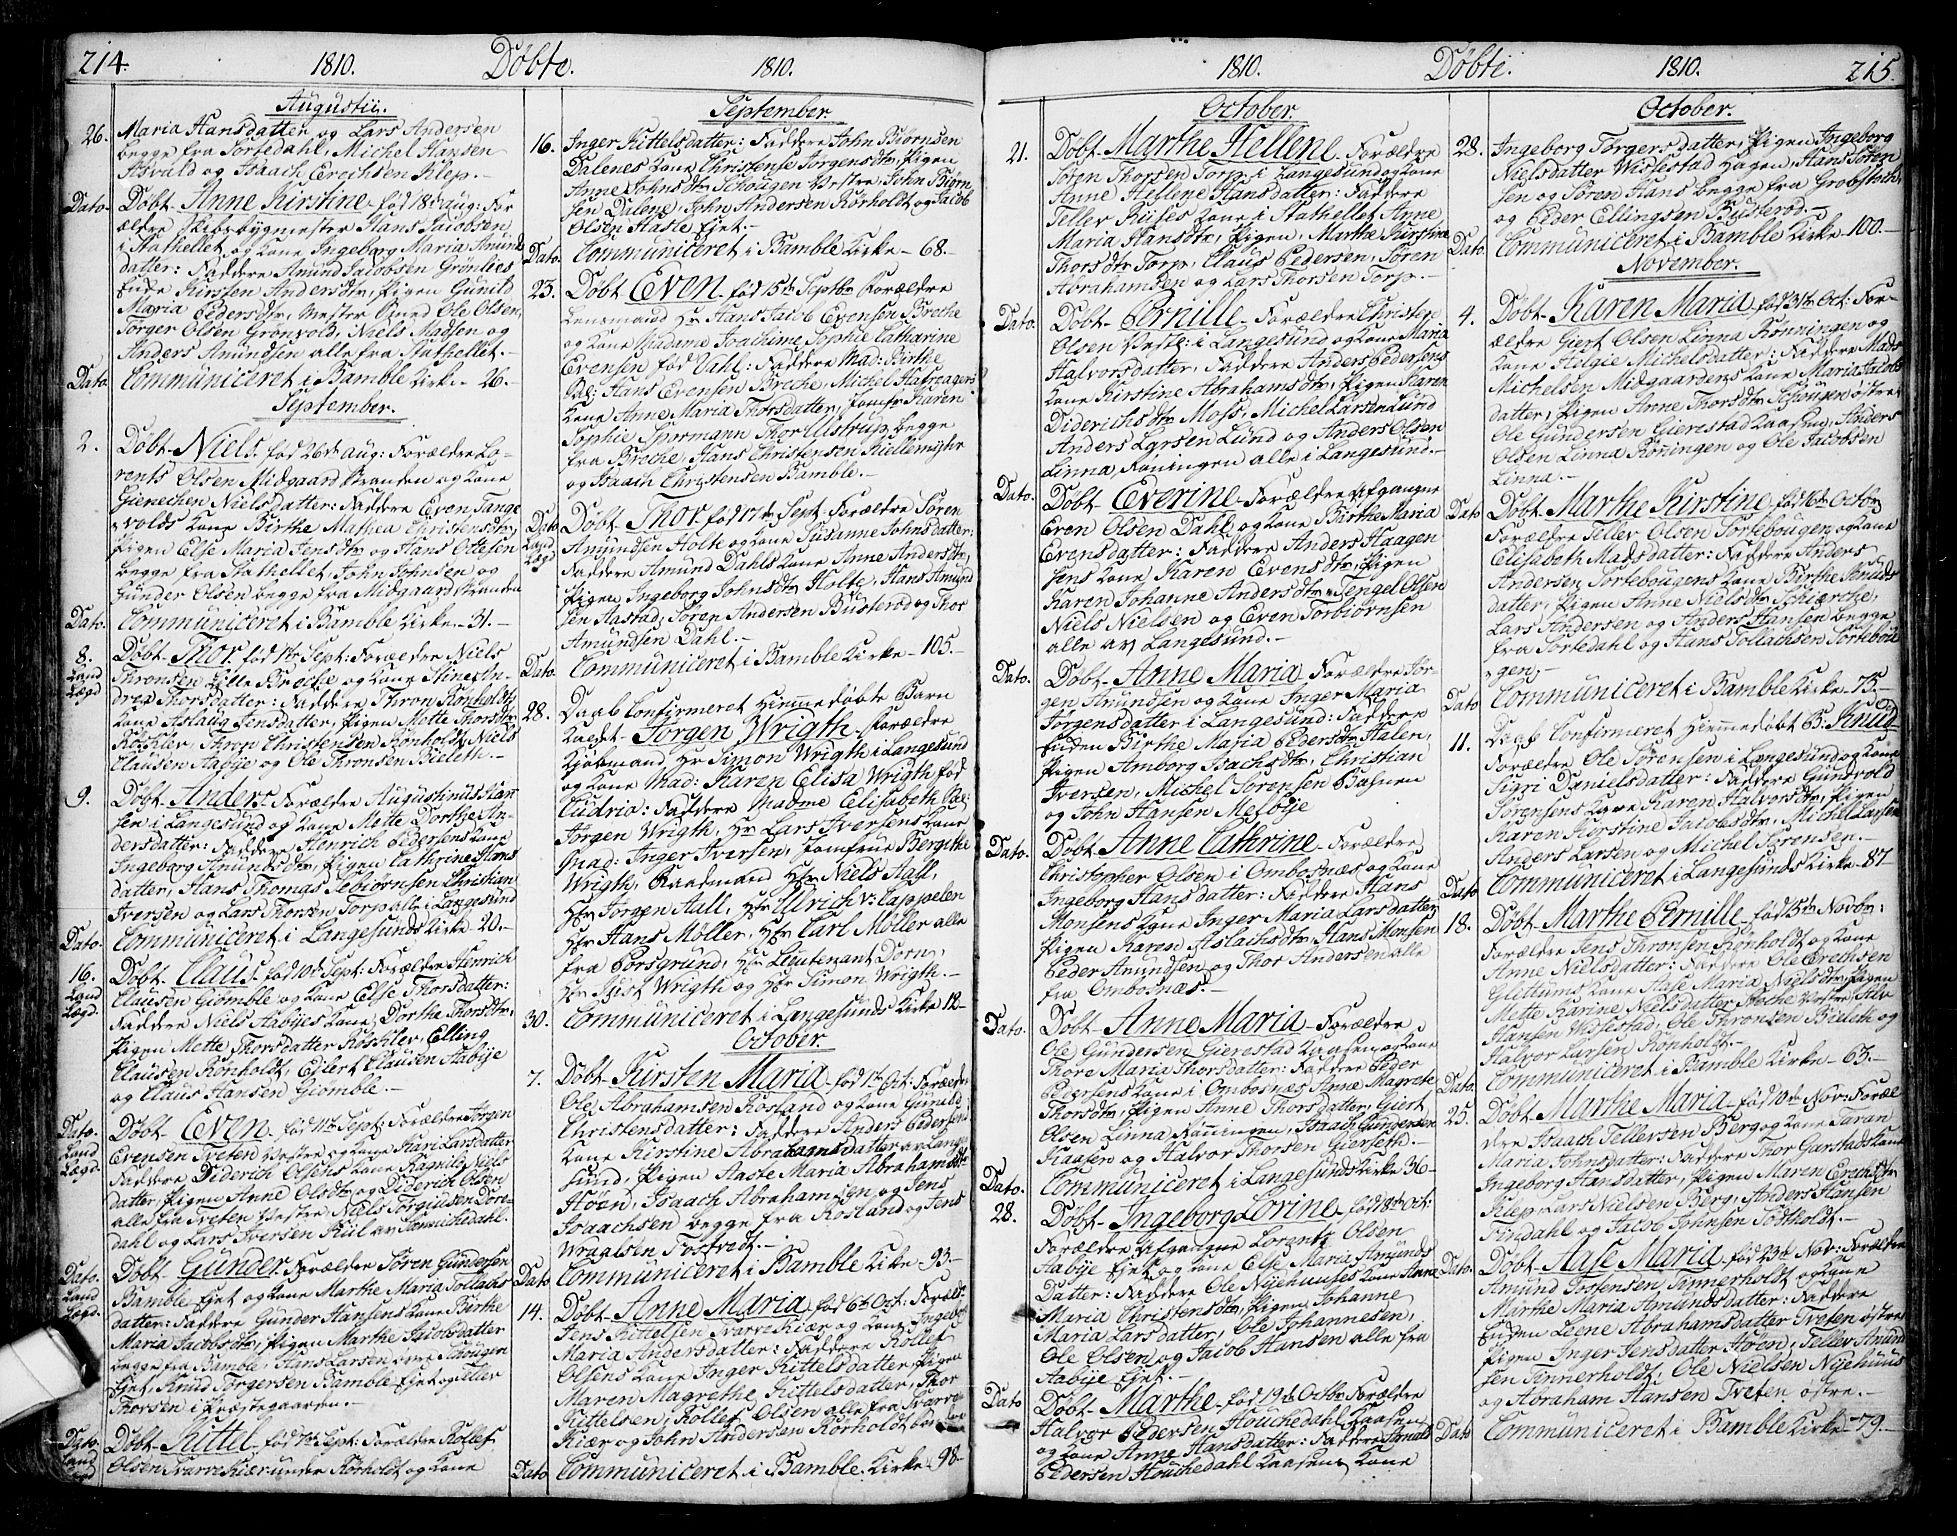 214. 1810. Døbte. 1810.
Augustii.
26. Maria Hansdatter og Lars Andersen
begge fra Tortedahl, Michel Hansen
Asvald og Isaach Erichsen Klep.
Dato. Døbt Anne Kirstine fød 18de Aug: For
ældre Skibsbygmester Hans Jacobsen
i Stathellet og Kone Ingeborg Maria Amund
datter: Faddere Amund Jacobsen Grønlies
Enke Kirsten Andersdtr, Pigen Gunild
Maria Pedersdtr, Mester Smed Ole Olsen,
Torger Olsen Grønvold, Niels Madsen og
Anders Amundsen alle fra Stathellet.
Dato Communiceret i Bamble Kirke 26.
September.
2. Døbt Niels fød 26de Aug: Forældre Lo-
rents Olsen Midgaard Stranden og Kone
Gienechen Nielsdatter: Faddere Even Tange
volds Kone Birthe Mathea Christensdtr,
Pigen Else Maria Jensdtr og Hans Ottesen
begge fra Stathellet, John Johnsen og
Gunder Olsen begge fra Midgaard Stranden
Dato. Communiceret i Bamble Kirke 31.
8. Døbt Thor fød 1te Sept: Forældre Niels
Land Thronsen Lille Broche og Kone Stine An-
Lægd drea Thorsdatter: Faddere Thron Rønholdts
Kone Aslaug Jensdatter, Pigen Mette Thorsdtr
Røschler, Thron Christensen Rønholdt, Niels
Clausen Aabÿe og Ole Thronsen Bieleth.
9. Døbt Anders Forældre Augustinus Lar
sen i Langesund og Kone Mette Dorthe An-
dersdatter: Faddere Henrich Pedersens Kone
Ingeborg Amundsdtr, Pigen Cathrine Hans
datter, Hans Thomas Tebiørnsen Christian
Iversen og Lars Thorsen Torp alle i Langesund
Dato. Communiceret i Langesunds Kirke 20.
16. Døbt Claus fød 10de Sept: Forældre Henrich
Land Clausen Giømble og Kone Else Thorsdatter:
Lægd. Faddere Niels Aabÿes Kone Dorthe Thorsdtr,
Pigen Mette Thorsdatter Røschler, Elling
Clausen Rønholdt, Eilert Clausen Aabÿe
og Claus Hansen Giømble.
Dato. Døbt Even fød 11te Sept: Forældre Jørgen
Land Evensen Tveten Vestre og Kone Kari Larsdatter
Lægd. Faddere Diderich Olsens Kone Ragnild Niels
datter, Pigen Anne Olsdtr og Diderich Olsen
alle fra Tveten Vestre Niels Torgiusen Døre-
dahl og Lars Iversen Kiil av Sannichedahl.
Dato. Døbt Gunder Forældre Søren Gundersen
Land Bamble Ejet og Kone Marthe Maria Tollachs
Lægd. datter: Faddere Gunder Hansens Kone Birthe
Maria Jacobsdtr, Pigen Marthe Jacobsdatter
begge fra Bamble, Hans Larsen øvre Schougen
Ejet, Knud Torgersen Bamble Ejet og Teller
Thorsen i Præstegaarden.
Dato Døbt Kittel fød 7de Sept: Forældre Rollef
Land Olsen Svarre Kiær under Rørholdt og Kone
Lægd
September.
16. Inger Kittelsdatter: Faddere John Biørnsen
Dalenes Kone Christense Torgensdtr, Pigen
Anne Johnsdtr Schougen Vestre, John Biørn
sen Dalene, John Andersen Rørholdt og Jacob
Olsen Hasle Ejet.
Dato. Communiceret i Bamble Kirke 68.
23. Døbt Even fød 15de Septbr Forældre
Lensmand Hr Hans Jacob Evensen Broche
og Kone Madame Joachime Sophie Catharine
Evensen fød Vahl: Faddere Mad: Birthe
Sal: Hans Evensen Broche, Michel Hafsagers
Kone Anne Maria Thorsdatter, Jomfr Karen
Sophie Spormann Thor Ulstrup begge
fra Broche, Hans Christensen Kiellemÿhr
og Isaach Christensen Bamble.
Dato Døbt Thor fød 17de Sept Forældre Søren
Land Amundsen Holte og Kone Susanne Johnsdatter,
Lægd Faddere Amund Dahls Kone Anne Andersdtr,
Pigen Ingeborg Johnsdtr Holte, Hans Amund
sen Aastad, Søren Andersen Busterød og Thor
Amundsen Dahl.
Dato. Communiceret i Bamble Kirke 105.
28. Daab Confirmeret Hiemmedøbte Barn
Kaldet Jørgen Wrigth Forældre
Kiøbmand Hr Simon Wrigth i Langesund
og Kone Mad: Karen Elisa Wrigth fød
Cudrio: Faddere Madme Elisabeth Sal:
Jørgen Wrigth, Hr Lars Iversens Kone
Mad: Inger Iversen, Jomfrue Bergithe
Wrigth, Raadmand Hr Niels Aall,
Hr Jørgen Aall, Hr Ulrich v: Cappelen
Hr Hans Møller, Hr Carl Møller alle
fra Porsgrund, Hr Lieutenant Dorn,
Hr Just Wrigth og Hr Simon Wrigth.
30. Communiceret i Langesunds Kirke 12
October
7. Døbt Kirsten Maria fød 1te Oct: Forældre
Ole Abrahamsen Rosland og Kone Gunild
Christensdatter: Faddere Anders Pedersens
Kone Kirstine Abrahamsdatter av Lange
sund, Pigen Aaste Maria Abrahamsdtr
Høen, Isaach Abrahamsen og Jens
Isaachsen begge fra Rosland og Jens
Wraalsen Fostvedt.
Dato Communiceret i Bamble Kirke 93.
14. Døbt Anne Maria fød 6te Oct: Foræld
Jens Kittelsen Svarre Kiær og Kone Ingeb
Maria Andersdatter: Faddere Rollef
Olsens Kone Inger Kittelsdatter, Pigen
Maren Magrethe Kittelsdatter, Thor
Kittelsen, Rollef Olsen alle fra Svarre
Kiær og John Andersen Rørholdt
Dato Communiceret i Bamble Kirke 98.
1810. Døbte. 1810. 215.
October.
21. Døbt Marthe Hellene Forældre
Søren Thorsen Torp i Langesund og Kone
Anne Hellene Hansdatter: Faddere
Teller Riises Kone i Stathellet Anne
Maria Hansdtr, Pigen Marthe Kirstine
Thorsdtr Torp, Claus Pedersen, Søren
Abrahamsen og Lars Thorsen Torp.
Dato. Døbt Pernille Forældre Christen
Olsen i Langesund og Kone Maria
Halvorsdatter, Faddere Anders Pedersens
Kone Kirstine Abrahamsdtr, Pigen Karen
Diderichsdtr Moss, Michel Larsen Lund
Anders Larsen Lund og Anders Olsen
Linna Røningen alle i Langesund.
Dato. Døbt Everine Forældre Afgangne
Even Olsen Dahl og Kone Birthe Maria
Evensdatter: Faddere Anders Haagen
sens Kone Karen Evensdtr, Pigen
Karen Johanne Andersdtr, Tengel Olsen
Niels Nielsen og Even Torbiørnsen
alle av Langesund.
Dato. Døbt Anne Maria Forældre Jør-
gen Amundsen og Kone Inger Maria
Jørgensdatter i Langesund: Faddere
Enken Birthe Maria Pedersdtr Halen,
Pigen Amborg Isachsdtr, Christian
Iversen, Michel Sørensen Balnen
og John Hansen Melbÿe
Dato. Døbt Anne Cathrine Forældre
Christopher Olsen i Ombosnæs og Kone
Ingeborg Hansdatter: Faddere Hans
Monsens Kone Inger Maria Larsdatter
Pigen Karen Aslachsdtr, Hans Monsen
Peder Amundsen og Thor Andersen alle
fra Ombosnæs.
Dato. Døbt Anne Maria Forældre
Ole Gundersen Gierestad Kaasen og Kone
Thore Maria Thorsdatter: Faddere Peder
Pedersens Kone i Ombosnæs Anne Magrete
Thorsdtr, Pigen Anne Thorsdatter, Giert
Olsen Linna Rønningen, Isaach Gundersen
Kaasen og Halvor Thorsen Gierseth.
Dato. Communiceret i Langesunds Kirke 36
28. Døbt Ingeborg Lorine fød 18de Oct:
Forældre Afgangne Lorents Olsen
Aabÿe Ejet og Kone Else Maria Amunds
Datter: Faddere Ole Nÿehuuses Kone Anne
Maria Christensdtr, Pigen Johanne
Maria Larsdatter, Ole Johannesen,
Ole Olsen og Jacob Hansen alle fra
Aabÿe Ejet.
Dato Døbt Marthe fød 19de Octbr Forældre
Halvor Pedersen Houchedahl Kaasen
og Kone Anne Hansdatter: Faddere Arnold
Pedersen Houchedahl Kaasens Kone
October.
28. Ingeborg Torgersdatter, Pigen Ingeborg
Nielsdatter Wissestad Hagen, Hans Søren
sen og Søren Hans begge fra Grobstoch,
og Peder Ellingsen Busterød.
Dato. Communiceret i Bamble Kirke 100.
November.
4. Døbt Karen Maria fød 31te Oct: For-
ældre Giert Olsen Linna Rønningen og
Kone Helgie Michelsdatter: Faddere Mads
Michelsen Midgaardens Kone Maria Jacobs
datter, Pigen Anne Thorsdtr Schougen østre
Ole Gundersen Gierestad Kaasen, Anders
Olsen Linna Rønningen og Ole Jacobsen
Linna.
Dato Døbt Marthe Kirstine fød 16de Octobr
Forældre Teller Olsen Tortebougen og Kone
Elisabeth Madsdatter: Faddere Anders
Andersen Tortebougens Kone Birthe Knuds
datter, Pigen Anne Nielsdtr Schierche,
Lars Andersen og Anders Hansen begge
fra Tortedahl og Hans Tollachsen Tortebou
gen.
Dato Communiceret i Bamble Kirke 75.
11. Daab Confirmeret Hiemmedøbt B: Knud
Forældre Ole Sørensen i Langesund og Kone
Sigri Danielsdatter: Faddere Gundvold
Sørensens Kone Karen Halvorsdtr, Pigen
Karen Kirstine Jacobsdtr, Michel Larsen
Anders Larsen og Michel Sørensen.
Dato Communiceret i Langesunds Kirke 87
18. Døbt Marthe Pernille fød 15de Novbr:
Forældre Jens Thronsen Rønholdt og Kone
Anne Nielsdatter: Faddere Ole Erechsen
Glittums Kone Aase Maria Nielsdtr, Pigen
Mette Karine Nielsdatter Vestre,
Hansen Wissestad, Ole Thronsen Bieleth og
Halvor Larsen Rønholdt.
Dato. Communiceret i Bamble Kirke 63.
25. Døbt Marthe Maria fød 10de Nov: Foræl
dre Isaach Tellersen Berg og Kone Taran
Maria Johnsdatter: Faddere Thor Garstads Kone
Ingeborg Hansdatter, Pigen Maren Erechsdtr
Klep, Lars Nielsen Berg, Anders Hansen
Findahl og Jacob Johnsen Tødtholdt.
Dato. Døbt Aase Maria fød 23de Nov: Forældre
Amund Tostensen Tinnerholdt og Kone
Marthe Maria Amundsdatter: Faddere
Enken Leene Abrahamsdatter Tveten østre
Pigen Inger Jensdatter Høen, Teller Amund
sen Tinnerholdt, Ole Nielsen Nÿehuus
og Abraham Hansen Tveten østre.
Dato Communiceret i Bamble Kirke 79.